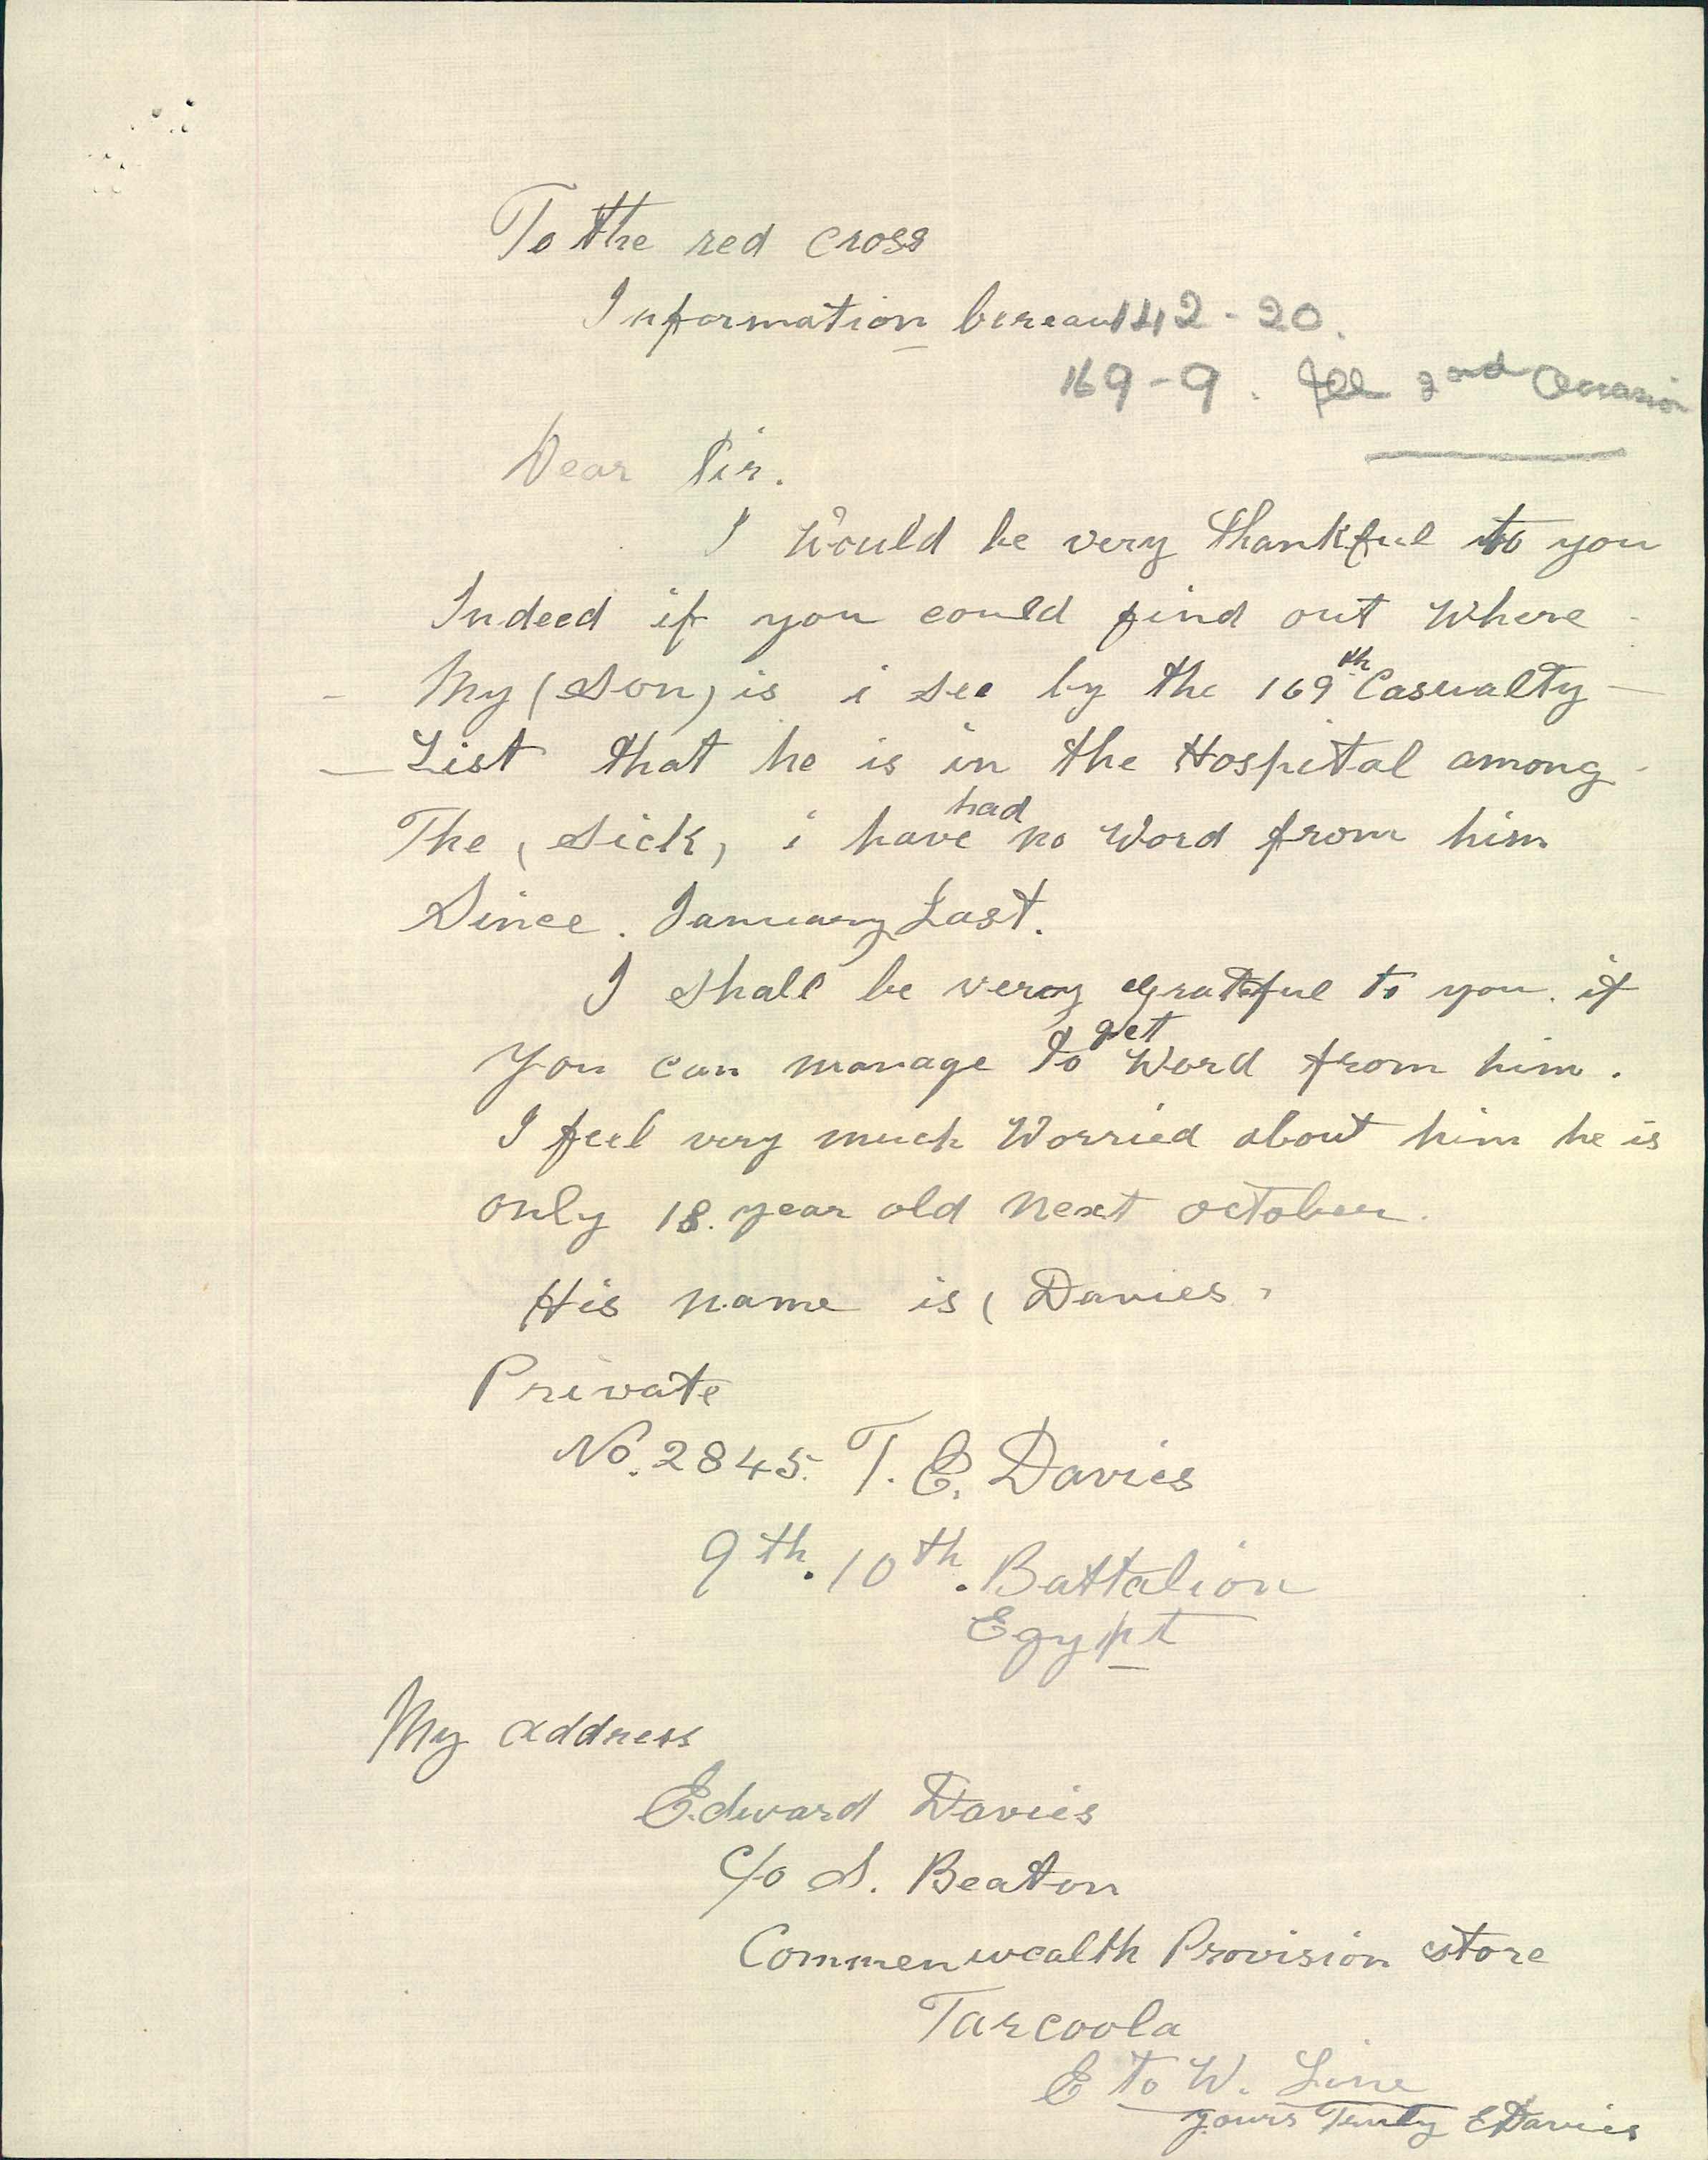 To the red cross
Information bereau 142-20.
169-9. Ill 2nd Occasion
Dear Sir.
I Would be very thankful to you
Indeed if you could find out Where
My (Son) is i see by the 169th Casualty
List that he is in the Hospital among
The (Sick) i have had no Word from him
Since. January Last.
I shall be very grateful to you. if
you can manage to get Word from him.
I feel very much Worried about him he is
only 18. year old Next october.
His name is (Davies)
Private
No. 2845. T. E. Davies
9th. 10th. Battalion
Egypt
My address
Edward Davies
C/o S. Beaton
Commenwealth Provision store
Tarcoola
E to W. Line
yours Truly E Davies